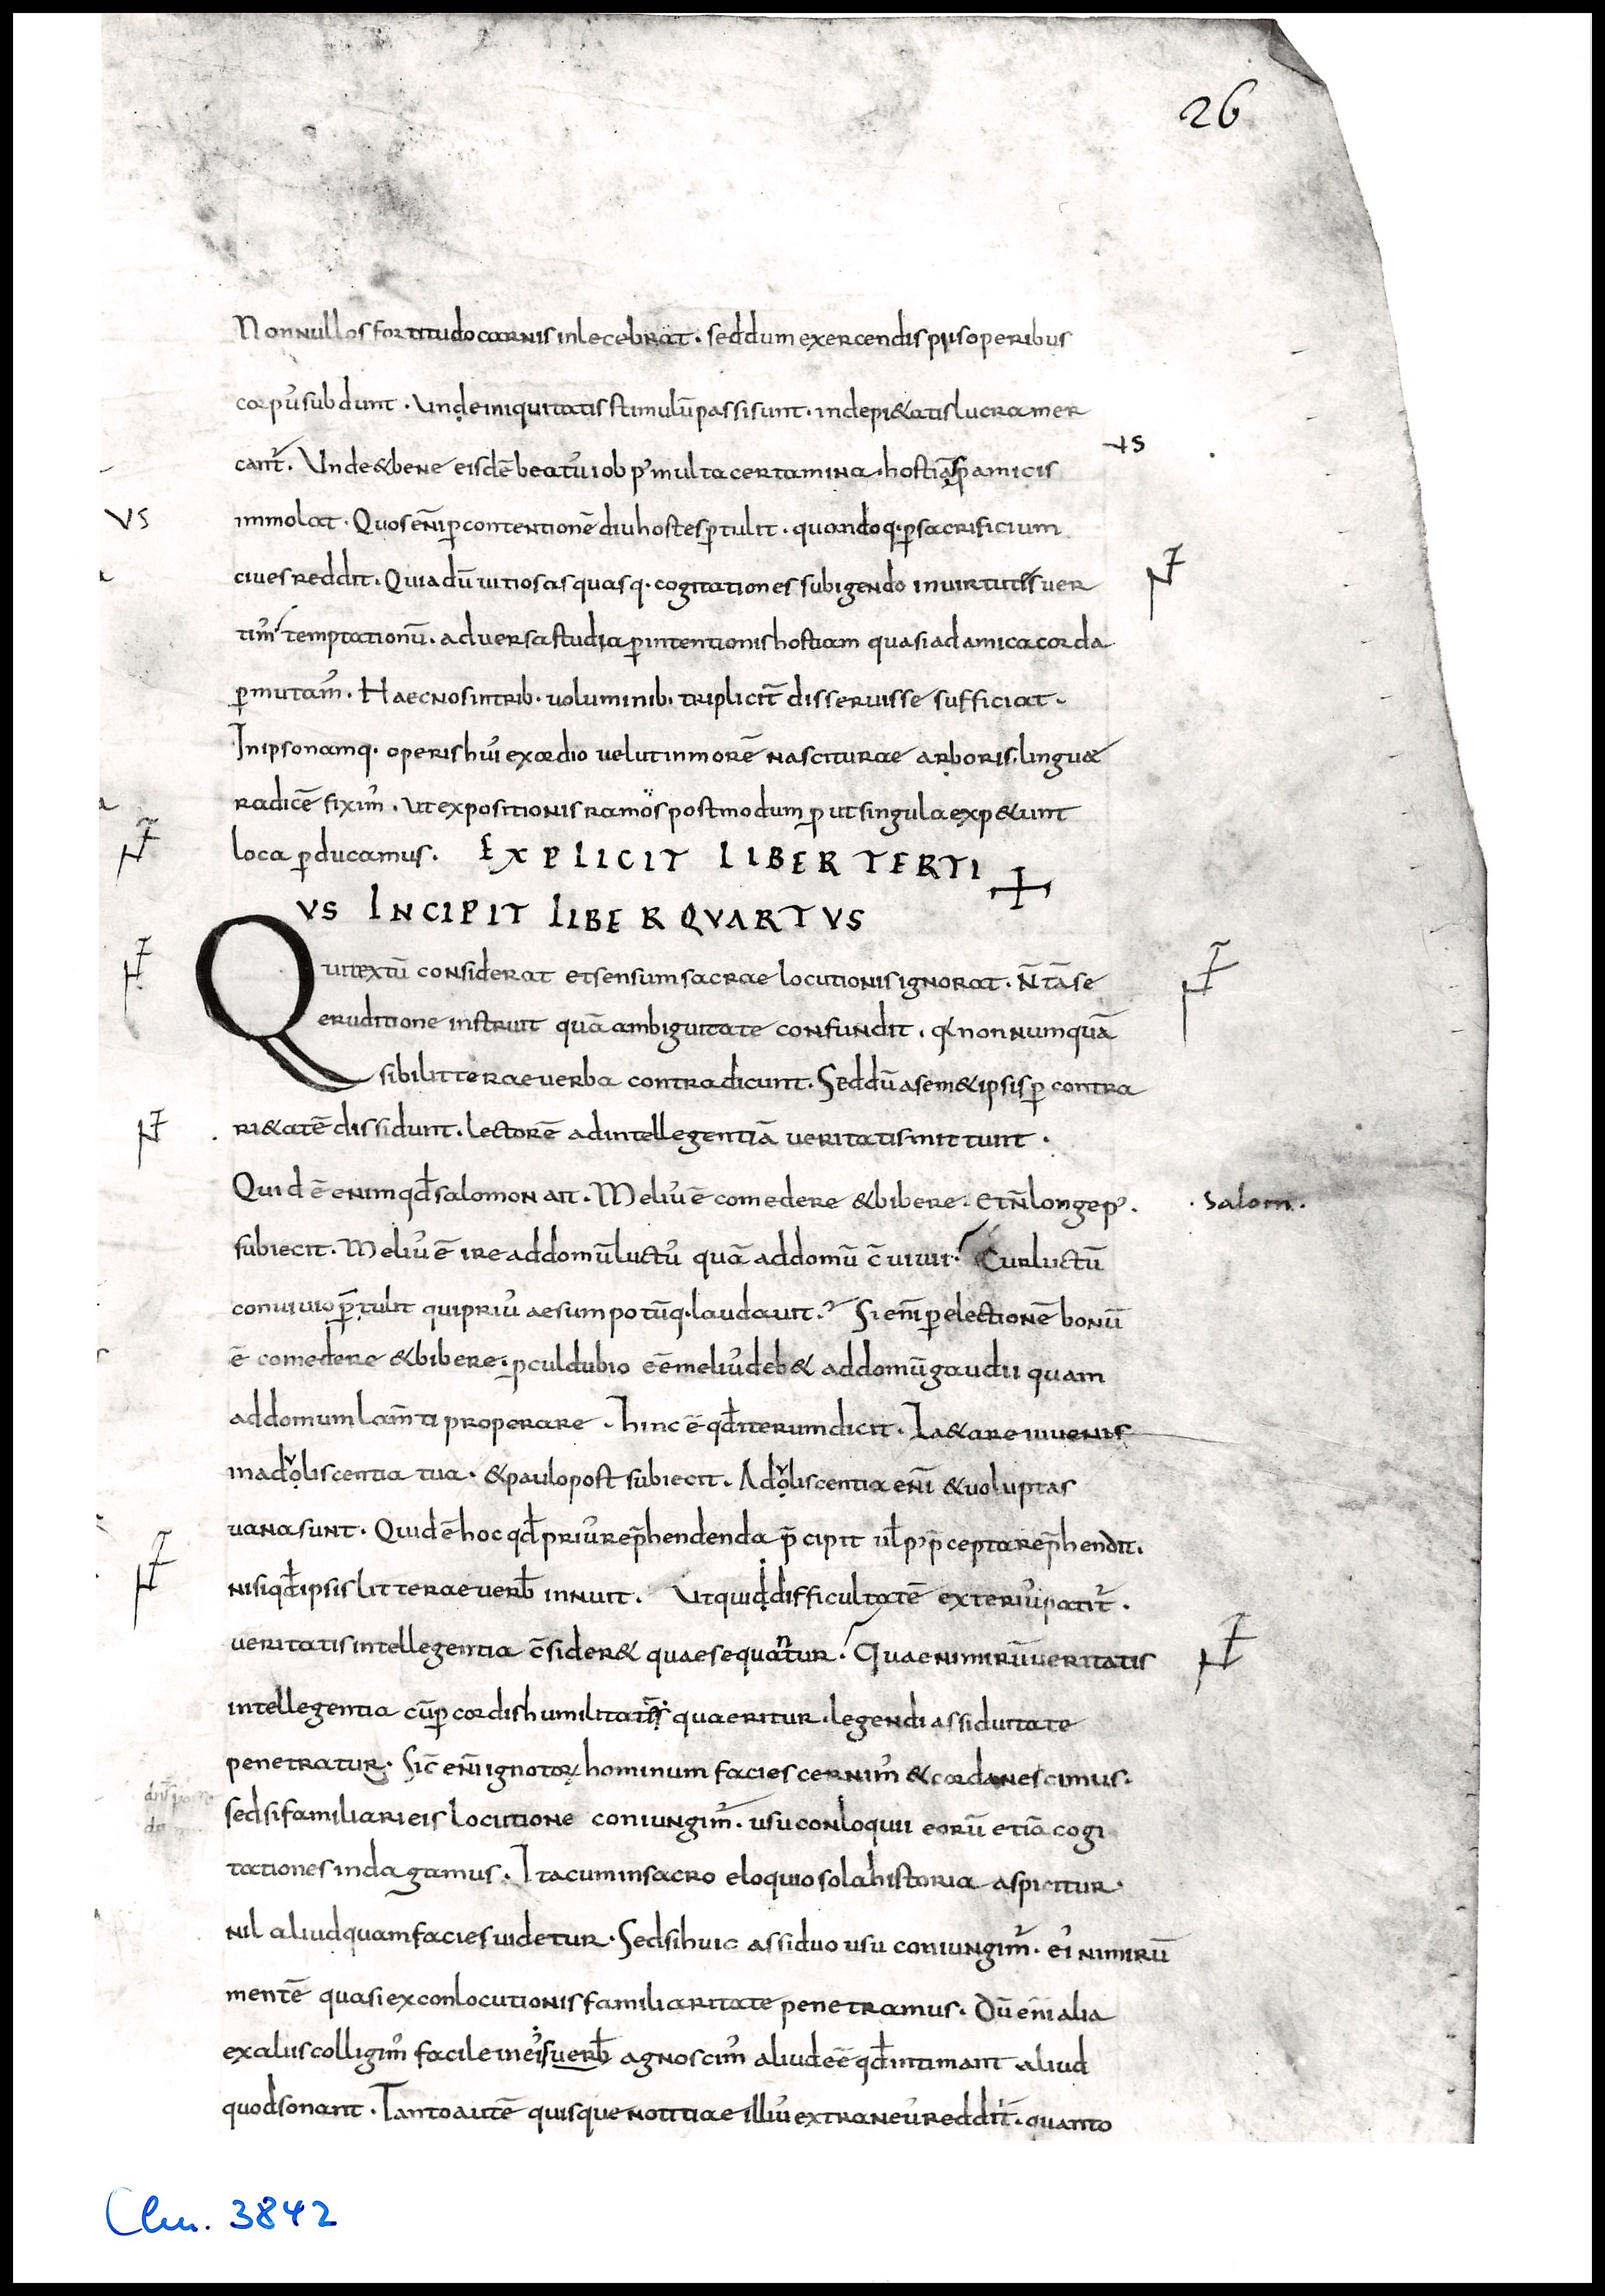 26
Nonnullos fortitudo carnis inlecebrat · sed dum exercendis piis operibus
corpuʾ subdunt · Unde iniquitatis stimulū passi sunt · inde pi&atis lucra mer
cant᷑ · Unde &bene eisdē beatuʾ iob pʾ multa certamina · hostiā ꝑ amicis
immolat · Quos em̄ ꝑ contentionē diu hostes ꝑtulit · quandoq· ꝑ sacrificium
ciues reddit · Quia dū uitiosas quasq· cogitationes subigendo in uirtutes uer
timʾ temptationū · adversa studia ꝑ intentionis hostiam quasi ad amica corda
ꝑmutamʾ · Haec nos in trib· voluminib· tripliciť disseruisse sufficiat ·
In ipso namq· operis huiʾ exordio velut in morē nasciturae arboris · linguae
radicē fiximʾ · ut expositionis ramos postmodum ꝓut singula exp&unt
loca ꝓducamus · EXPLICIT LIBER TERTI
VS INCIPIT LIBER QVARTVS
Qui textū considerat et sensum sacrae locutionis ignorat · N̄ tā se
eruditione instruit quā ambiguitate confundit · q nonnumquā
sibi litterae verba contradicunt · Sed dū a sem&ipsis ꝑ contra
ri&atē dissidunt · lectorē ad intellegentiā veritatis mittunt ·
Quid ē enim qđ salomon ait · Meliuʾ ē comedere & bibere · Et n̄ longe pʾ ·
· Salom ·
subiecit · Meliuʾ ē ire ad domū luctuʾ quā ad domū c̄vivii · Cur luctū
convivio p̄tulit qui priuʾ aesum potūq· laudavit · Si em̄ ꝑ electionē bonū
ē comedere & bibere · ꝓculdubio eē meliuʾ deb& ad domū gaudii quam
ad domum lam̄ti properare · hinc ē qđ iterum dicit · La&are iuvenis
in adoliscentia tua · & paulo post subiecit · Adoliscentia eni & voluptas
vana sunt · Quid ē hoc qđ priuʾ rep̄hendenda p̄cipit uł pʾ p̄cepta rep̄hendit ·
nisi qđ ipsis litterae verb̄ innuit · Ut qui difficultatē exteriuʾ patit᷑ ·
veritatis intellegentia c̄sider& quae sequatur · Quae nimirū veritatis
intellegentia cū ꝑ cordis humilitatē quaeritur · legendi assiduitate
penetratur · Sic̄ eni ignotoꝝ hominum facies cernimʾ & corda nescimus ·
sed si familiari eis locutione coniungim᷑ · usu conloquii eorū etiā cogi
tationes indagamus · Ita cum in sacro eloquio sola historia aspicitur ·
nil aliud quam facies videtur · Sed si huic assiduo usu coniungim᷑ · eiʾ nimirū
mentē quasi ex conlocutionis familiaritate penetramus · Dū eni alia
ex aliis colligimʾ facile in eiʾ verb̄ agnoscimʾ aliud eē qđ intimant aliud
quod sonant · Tanto autē quisque notitiae illiuʾ extraneuʾ reddit᷑ · quanto
Clm. 3842